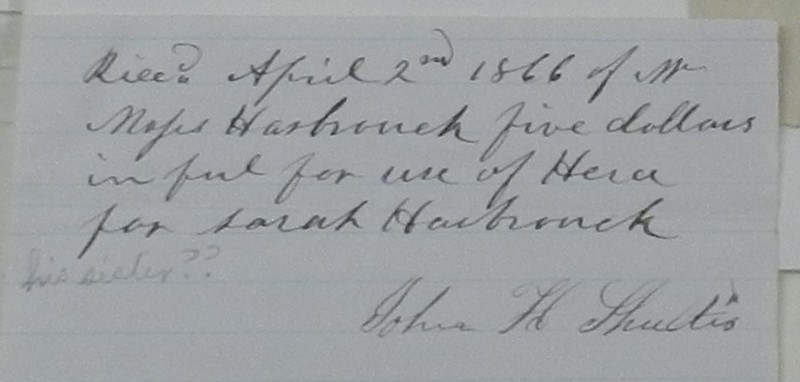 Recd April 2nd 1866 of Mr
Moses Hasbrouck five dollars
in ful for use of
for sarah Hasbrouck
his sister??
John H Shultis